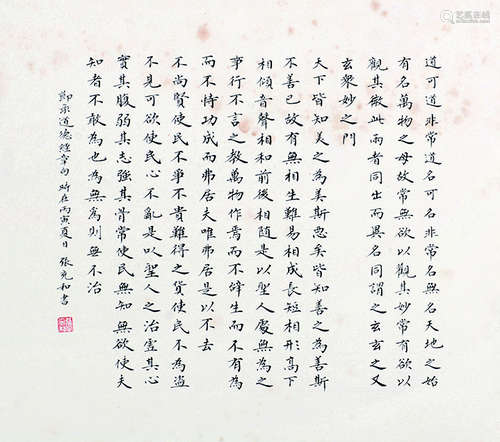 道可道非常道名可名非常名無名天地之始
有名萬物之母故常無欲以觀其妙常有欲以
觀其徼此兩者同出而異名同謂之玄玄之又
玄眾妙之門
天下皆知美之為美斯惡矣皆知善之為善斯
不善已故有無相生難易相成長短相形高下
相傾音聲相和前後相隨是以聖人處無為之
事行不言之教萬物作焉而不辭生而不有為
而不恃功成而弗居夫唯弗居是以不去
不尚賢使民不爭不貴難得之貨使民不為盜
不見可欲使民心不亂是以聖人之治虛其心
實其腹弱其志強其骨常使民無知無欲使夫
知者不敢為也為無為則無不治
道德經章句 時在丙寅夏日 張充和書
艺狐在线